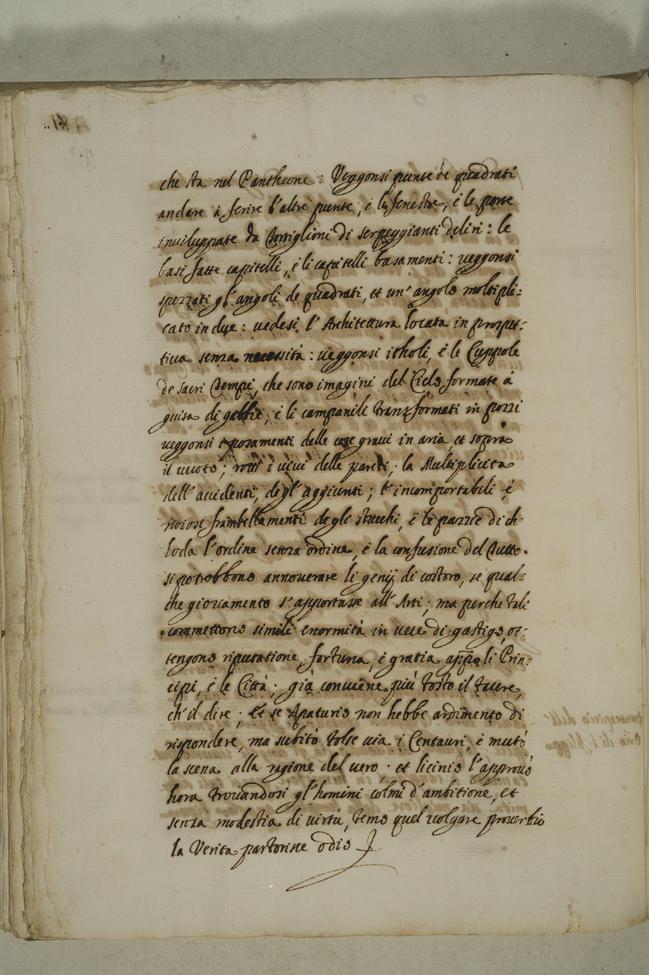 che sta nel Pantheone: Veggonsi punte de quadrati
andare à ferire l'altre punte, è le fenestre, è le porte
inviluppate da Cortiglioni di serpeggianti deliri: le
basi fatte capitelli, è li capitelli basamenti: veggonsi
spezzati gl'angoli de quadrati, et un'angolo moltipli-
cato in due: vedesi l'Architettura locata in prospet-
tiva senza necessità: veggonsi i tholi, è le Cuppole
de sacri Tempi, che sono imagini del Cielo formate à
guisa di gabbie; è li campanili transformati in pozzi
veggonsi i posamenti delle cose gravi in aria et sopra
il vuoto; rotti i vivi delle pareti, la Multiplicità
dell'accidenti, degl'aggiunti; l'incomportabili, è
noiosi frambellamenti degli stucchi, è le pazzie di chi
loda l'ordine senza ordine, è la confusione del Tutto.
si potrebbono annoverare li genij di costoro, se qual-
che giovamento s'apportasse all'Arti; ma perche tali
commettono simili enormità in vece di gastigo, ot-
tengono riputatione, fortuna, è gratia appo li Prin-
cipi, è le Città; già conviene più tosto il tacere,
ch'il dire; Et se Apaturio non hebbe ardimento di
rispondere, ma subito tolse via i Centauri, è mutò
la scena alla ragione del vero. et licinio l'approvò
hora trovandosi gl'homini colmi d'ambitione, et
senza modestia di virtù, temo quel volgare proverbio
la Verità partorisce odio